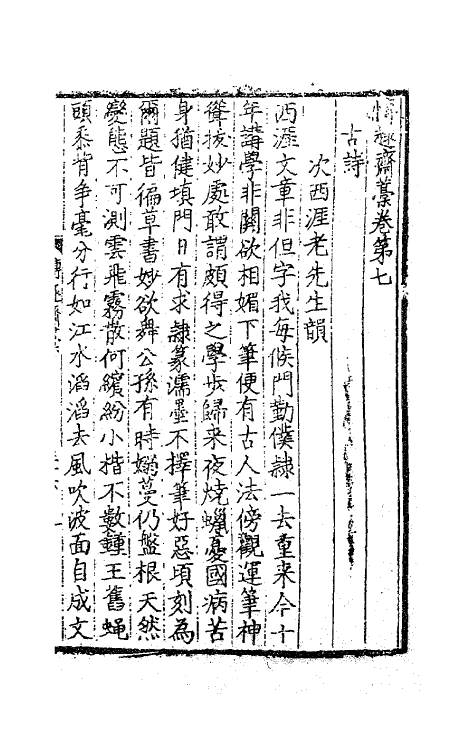 博趣齋藁卷第七
古詩
次西涯老先生韻
西涯文章非但字我每候門勤僕隸一去重來今十
年講學非關欲相媚下筆便有古人法傍觀運筆神
聳拔妙處敢謂頗得之學步歸来夜燒蠟憂國病苦
身猶健填門日有求隷篆濡墨不擇筆好惡頃刻為
爾題皆徧草書妙欲舞公孫有時嫋蔓仍盤根天然
變態不可測雲飛霧散何繽紛小揩不數鍾王舊蝇
頭黍背争毫分行如江水滔滔去風吹波面自成文